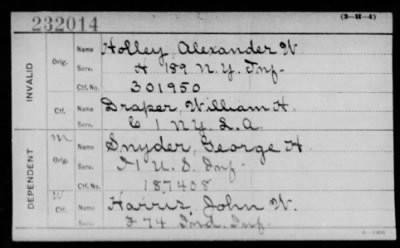 232014
(3-H-4)
INVALID
Orig.
Name Holley, Alexander W
Serv. H 189 N.Y. Inf-
Ctf. No. 301950
Ctf.
Name Draper, William H.
Serv. C 1 N.Y. L.A.
DEPENDENT
M
Orig.
Name Snyder, George H
Serv. I 1 U.S. Inf-
Ctf. No. 187408
W
Ctf.
Name Harris, John W.
Serv. F 74 Ind. Inf-